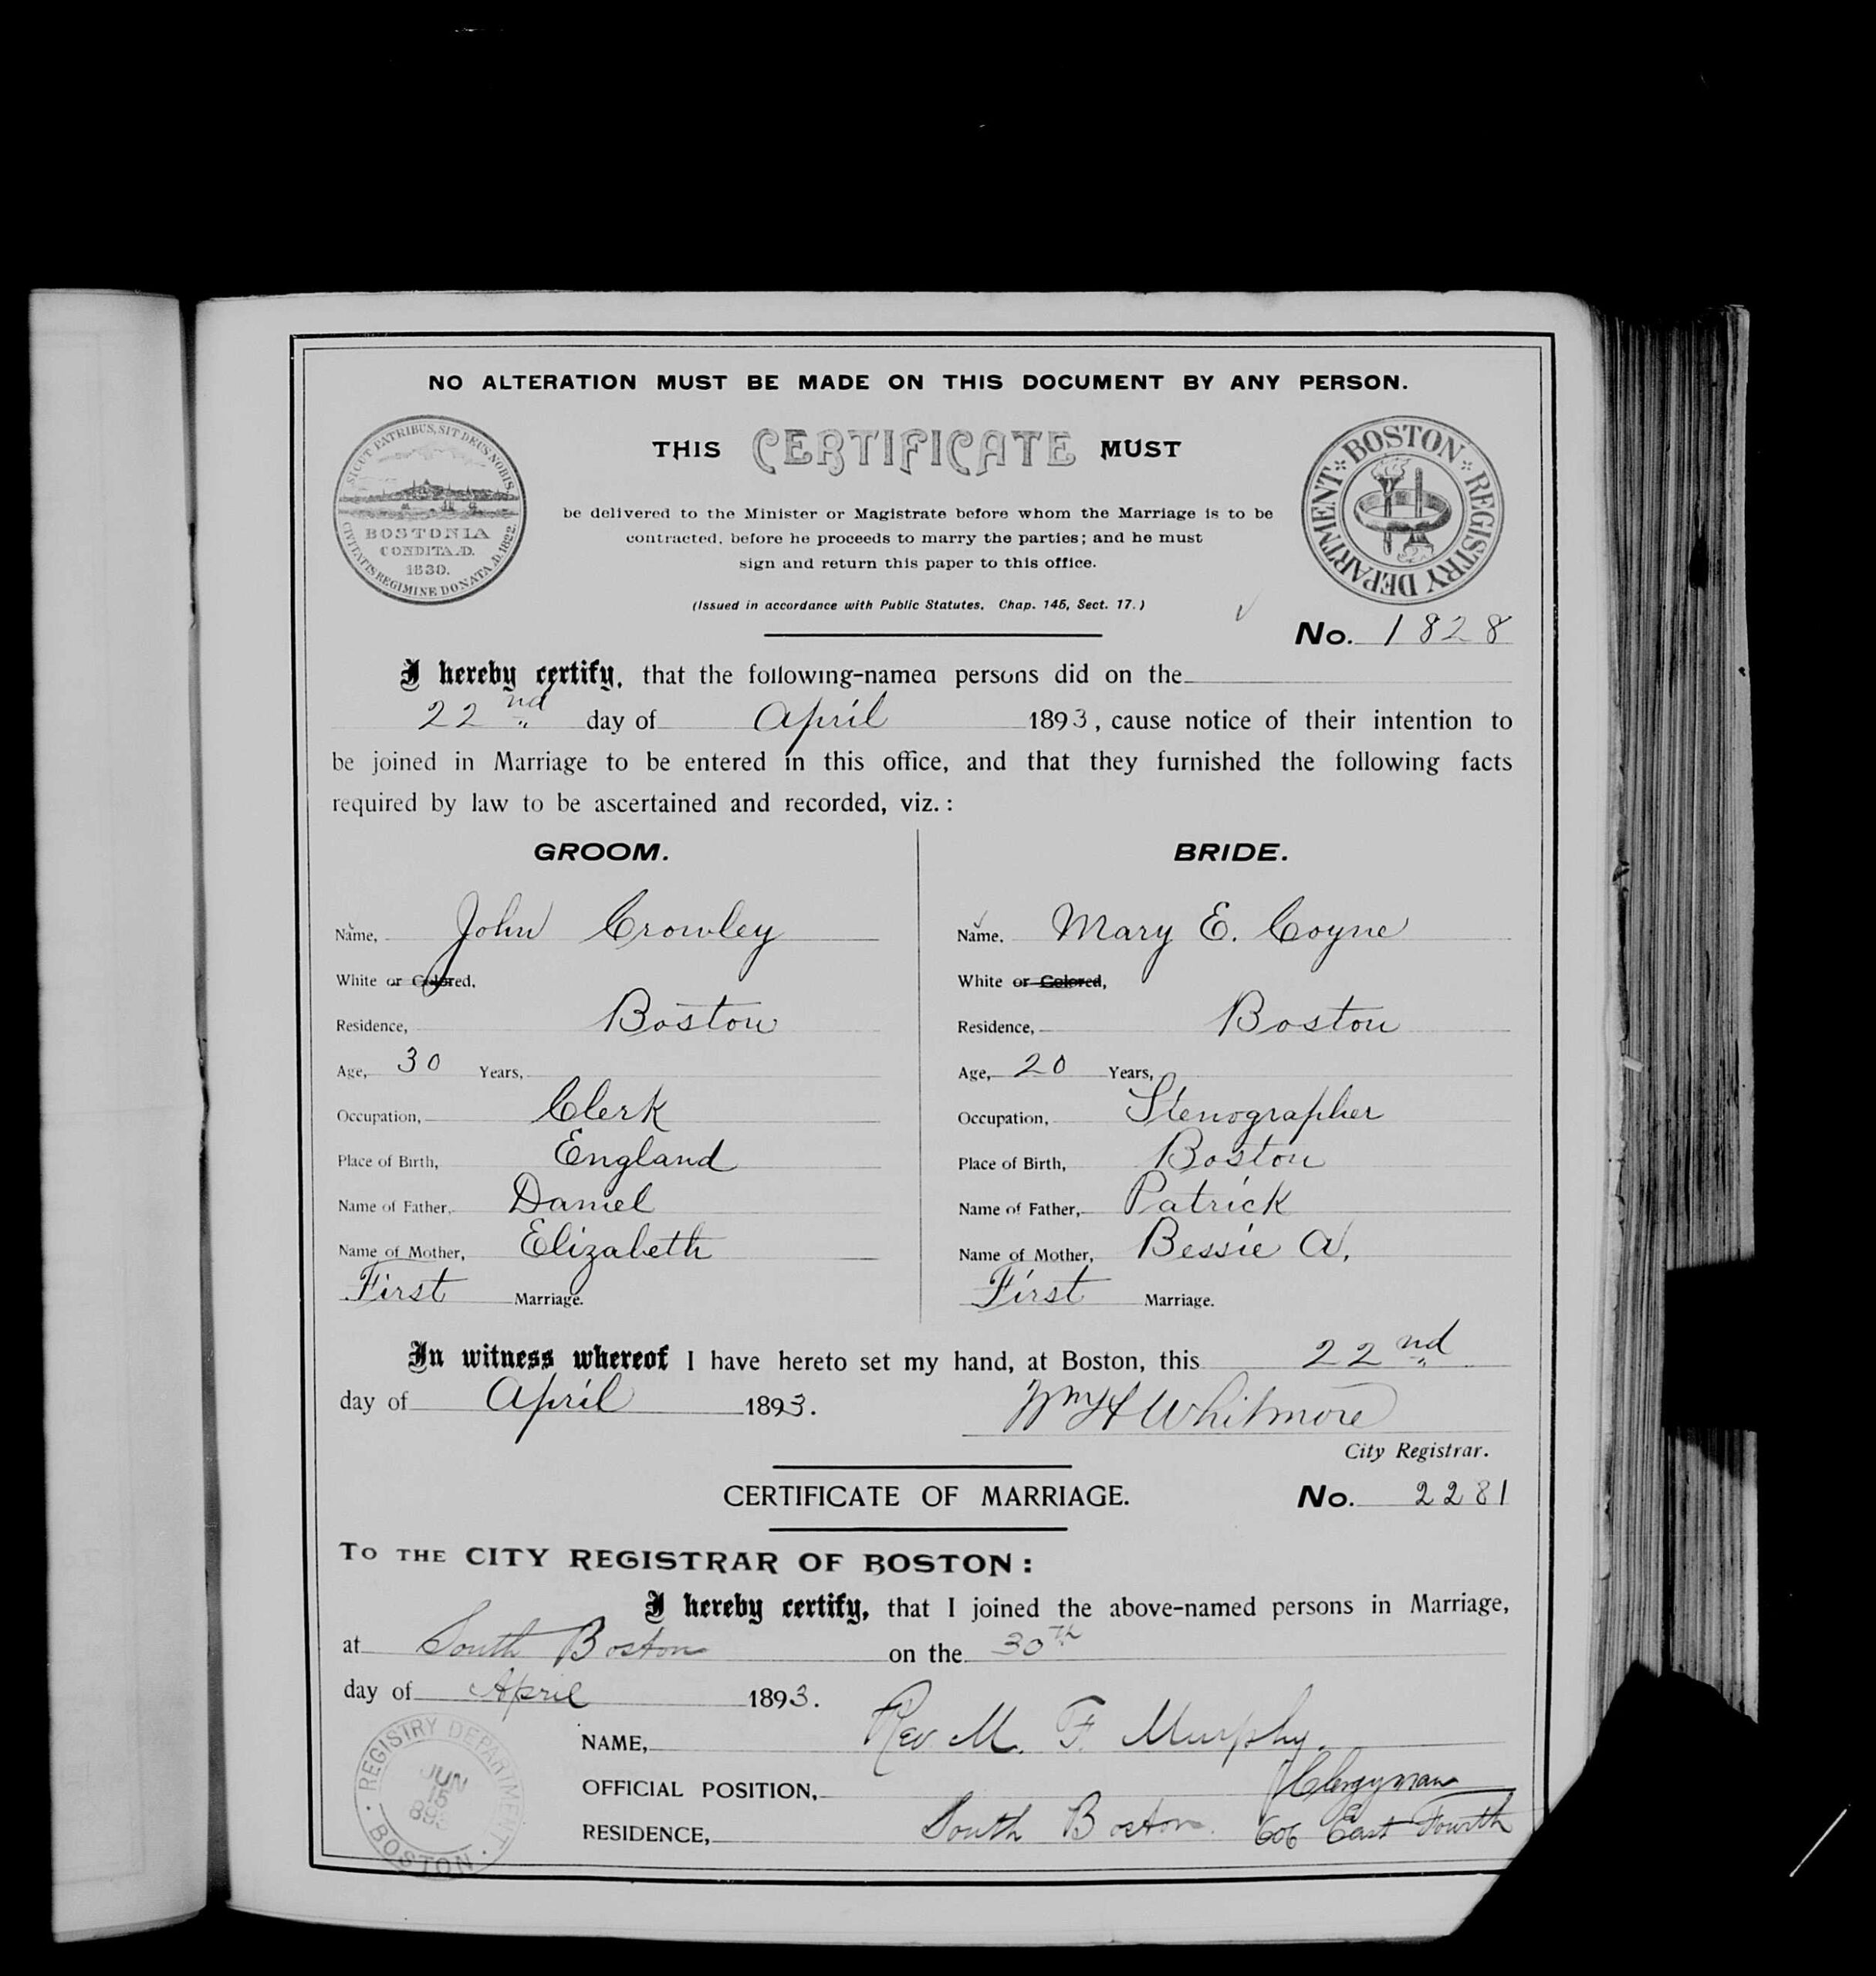 NO ALTERATION MUST BE MADE ON THIS DOCUMENT BY ANY PERSON.
SICUT PATRIBUS, SIT DEUS NOBIS.
BOSTONIA
CONDITA A.D.
1630.
CIVITATIS REGIMINE DONATA A.D. 1822.
THIS CERTIFICATE MUST
BOSTON REGISTRY DEPARTMENT
be delivered to the Minister or Magistrate before whom the Marriage is to be
contracted, before he proceeds to marry the parties; and he must
sign and return this paper to this office.
(Issued in accordance with Public Statutes, Chap. 145, Sect. 17.)
No. 1828
I hereby certify, that the following-named persons did on the
22nd day of April 1893, cause notice of their intention to
be joined in Marriage to be entered in this office, and that they furnished the following facts
required by law to be ascertained and recorded, viz.:
GROOM.
Name, John Crowley
White or Colored,
Residence, Boston
Age, 30 Years,
Occupation, Clerk
Place of Birth, England
Name of Father, Daniel
Name of Mother, Elizabeth
First Marriage.
BRIDE.
Name, Mary E. Coyne
White or Colored,
Residence, Boston
Age, 20 Years,
Occupation, Stenographer
Place of Birth, Boston
Name of Father, Patrick
Name of Mother, Bessie A.
First Marriage.
In witness whereof I have hereto set my hand, at Boston, this 22nd
day of April 1893.
Wm H Whitmore
City Registrar.
CERTIFICATE OF MARRIAGE. No. 2281
TO THE CITY REGISTRAR OF BOSTON:
I hereby certify, that I joined the above-named persons in Marriage,
at South Boston on the 30th
day of April 1893.
NAME, Rev M. F. Murphy.
OFFICIAL POSITION, Clergyman
RESIDENCE, South Boston. 606 East Fourth
REGISTRY DEPARTMENT
JUN
15
893
BOSTON